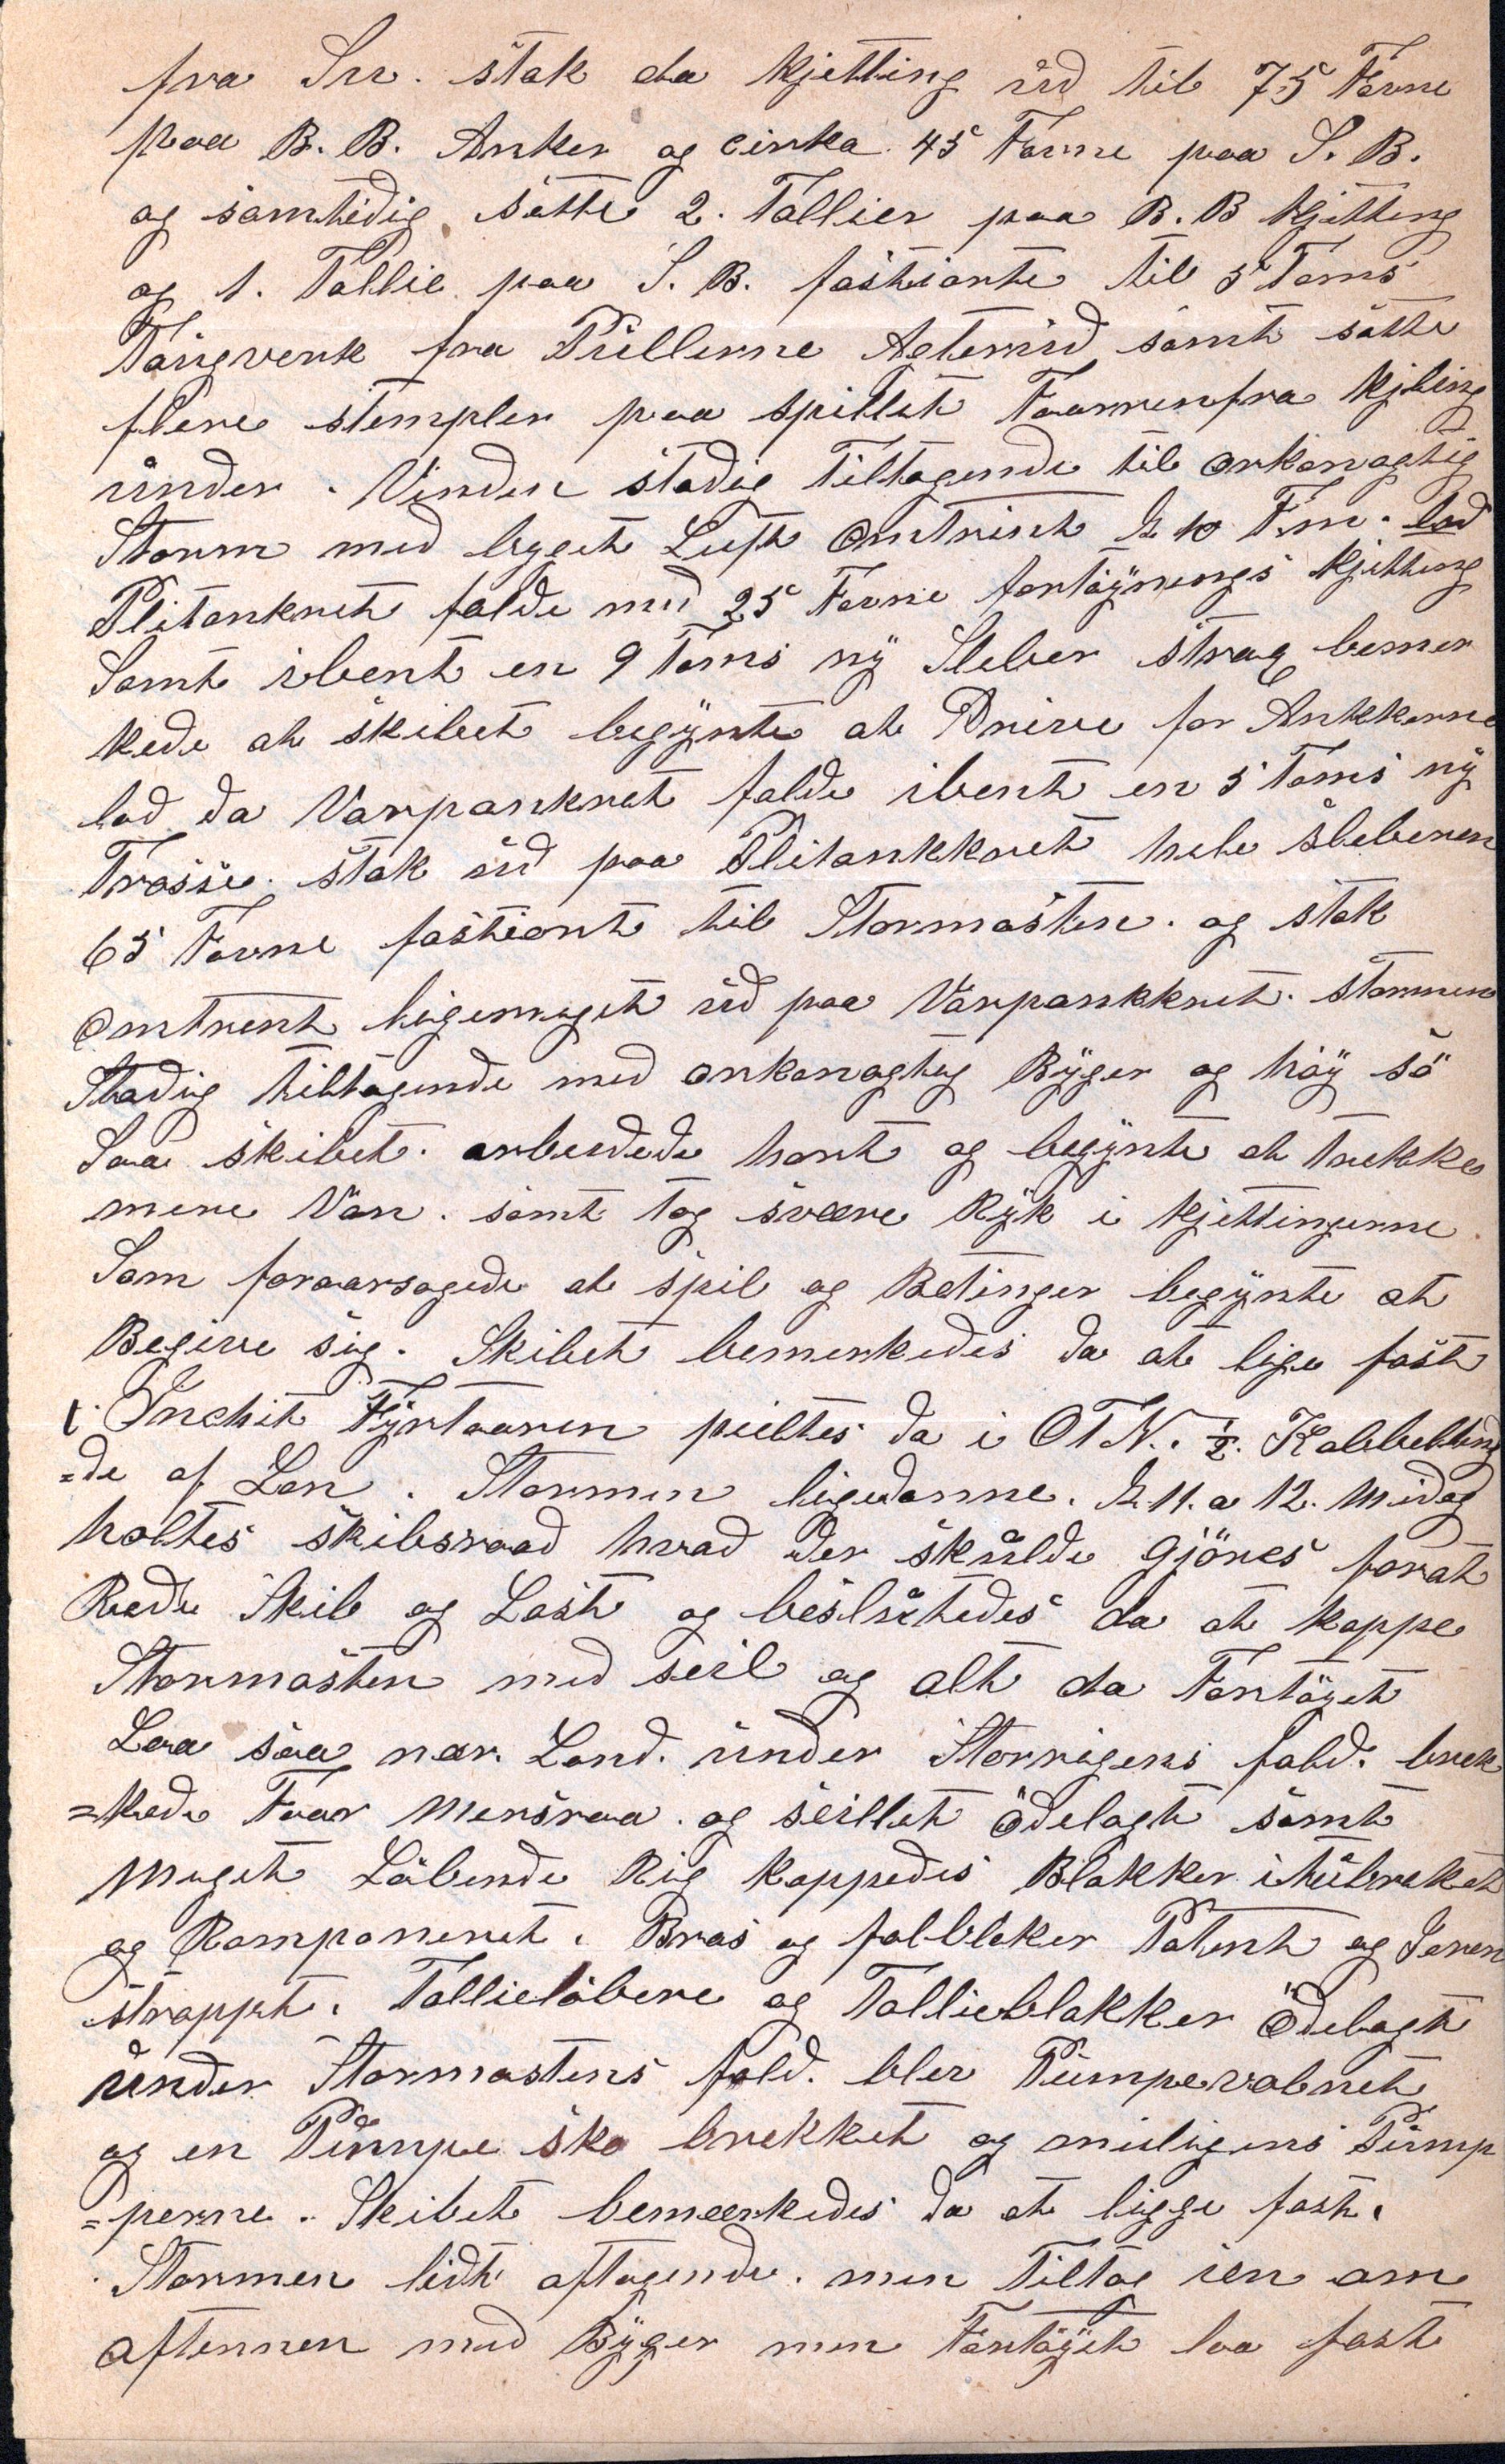 fra Snr. stak da kjetting ud til 75 Favne
paa B. B. Anker og cirka 45 Favne paa S. B.
og samtidig sätte 2. Tallier paa B. B kjetting
og 1. Tallie paa S. B. fastjorte til 5 Toms
Taugverk fra Pullerne Agterud samt sätte
flere stempler paa spillet Faarrenfra kjting
under. Vinden stadig Tiltagende til orkanagtig
Storm med byget Luft Omtrint K 10 F.m. lod
Plitankret falde med 25 Favne fortöynings kjetting
Samt ibent en 9 Toms ny Sleber strag bemer
kede at skibet begynte at Drive for Ankkerne
lod da Varpankret falde ibent en 5 Toms ny
Trosse. stak ud paa Plitankkret hele sleberen
65 Favne fastjort til Stormasten. og stak
Omtrent ligemeget ud paa Varpankkret. stormen
Stadig tiltagende med orkanagtig Byger og höy sö
Saa skibet. arbeidede hart og begynte at trekke
mere Van. samt tog svære Ryk i kjettingerne
Som foraarsagede at spil og Betinger begynte at
Begive sig. Skibet bemerkedes da at lige fast
Fyrtaaren peiltes da i OTN. ½. Kabbelleng
=de af Lan. Stormen ligedanne. K 11. a 12. Midag
holtes skibsraad hvad der skulde gjöres forat
Rede Skib og Last og beslutedes da at kappe
Stormasten med seil og alt da Fartöyet
Laa saa nær Land. under Storrigens fald. brek
=kede Faar Mersraa. og seillet ödelagt samt
Meget Löbende Rig kappedes Blakker itubreket
og Ramponeret. Bras og falbloker Patent og Jeren
stroppt. Tallielöbere og Tallieblakker ödelagt
under Stormastens fald. blev Pumpevalnet
og en Pumpe sko brekket og muligens Pump
=perne. Skibet bemeerkedes da at ligge fast.
Stormen lidt aftagende. men Tiltog ien om
aftennen med Byger men Fartöyet laa fast